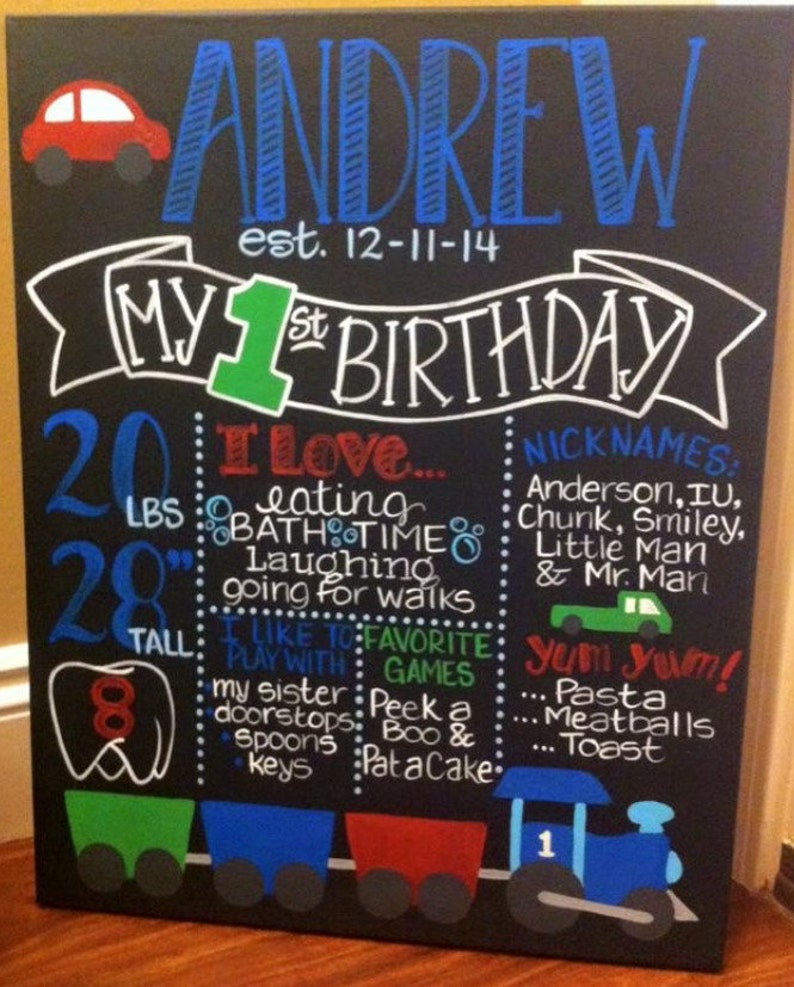 ANDREW
est. 12-11-14
MY 1st BIRTHDAY
20
LBS
28"
TALL
8
I Love...
eating
BATH TIME
Laughing
going for walks
NICKNAMES:
Anderson, IU,
Chunk, Smiley,
Little Man
& Mr. Man
I LIKE TO
PLAY WITH
•my sister
•doorstops
•spoons
•keys
FAVORITE
GAMES
Peek a
Boo &
Pat a Cake
yum yum!
... Pasta
... Meatballs
... Toast
1